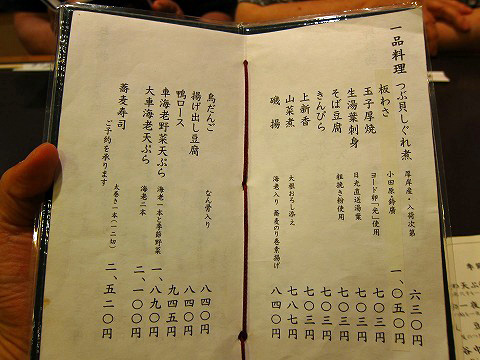 一品料理
つぶ貝しぐれ煮 厚岸産・入荷次第 六三〇円
板わさ 小田原鈴廣 一、〇五〇円
玉子厚焼 ヨード卵「光」使用 七〇三円
生湯葉刺身 日光直送湯葉 七〇三円
そば豆腐 粗挽き粉使用 七〇三円
きんぴら 七〇三円
上新香 七〇三円
山菜煮 大根おろし添え 七八七円
磯揚 海老入り 蕎麦のり巻素揚げ 八四〇円
鳥だんご なん骨入り 八四〇円
揚げ出し豆腐 八四〇円
鴨ロース 九四五円
車海老野菜天ぷら 海老一本と季節野菜 一、八九〇円
大車海老天ぷら 海老二本 二、一〇〇円
蕎麦寿司 ご予約を承ります 太巻き一本(一二切) 二、五二〇円